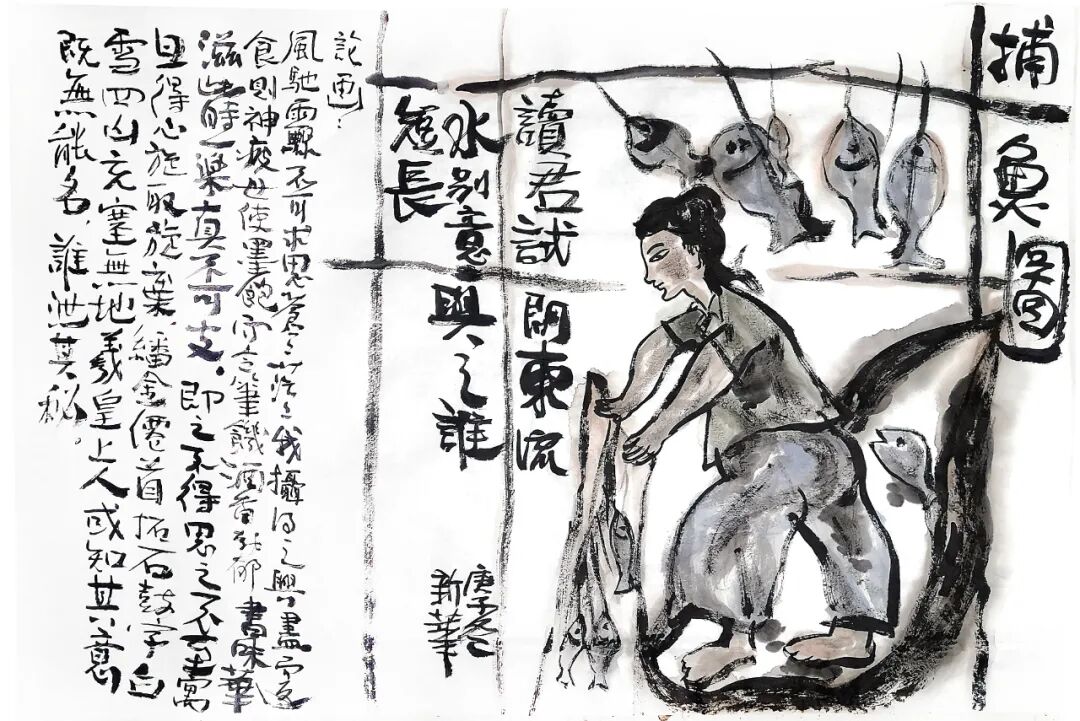 捕魚圖
讀君試問東流
水別意與之誰
短長
庚子冬
新華
記画:
風馳雲驟不可求思蒼之茫之我攝得之興盡忘
食則神疲也使墨飽筆饑酒香書味華
滋此時一樂真不可支,即之不得思之不至寓
目得心旋取旋棄繙金僊首拓石鼓字白
雪四山充塞無地羲皇上人或知其意
既無能名,誰泄其秘.